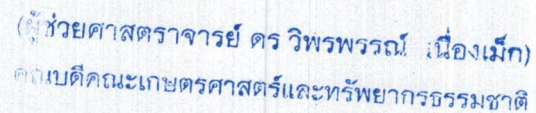 (ผู้ช่วยศาสตราจารย์ ดร วิพรพรรณ์ เนื่องเม็ก)
คณบดีคณะเกษตรศาสตร์และทรัพยากรธรรมชาติ